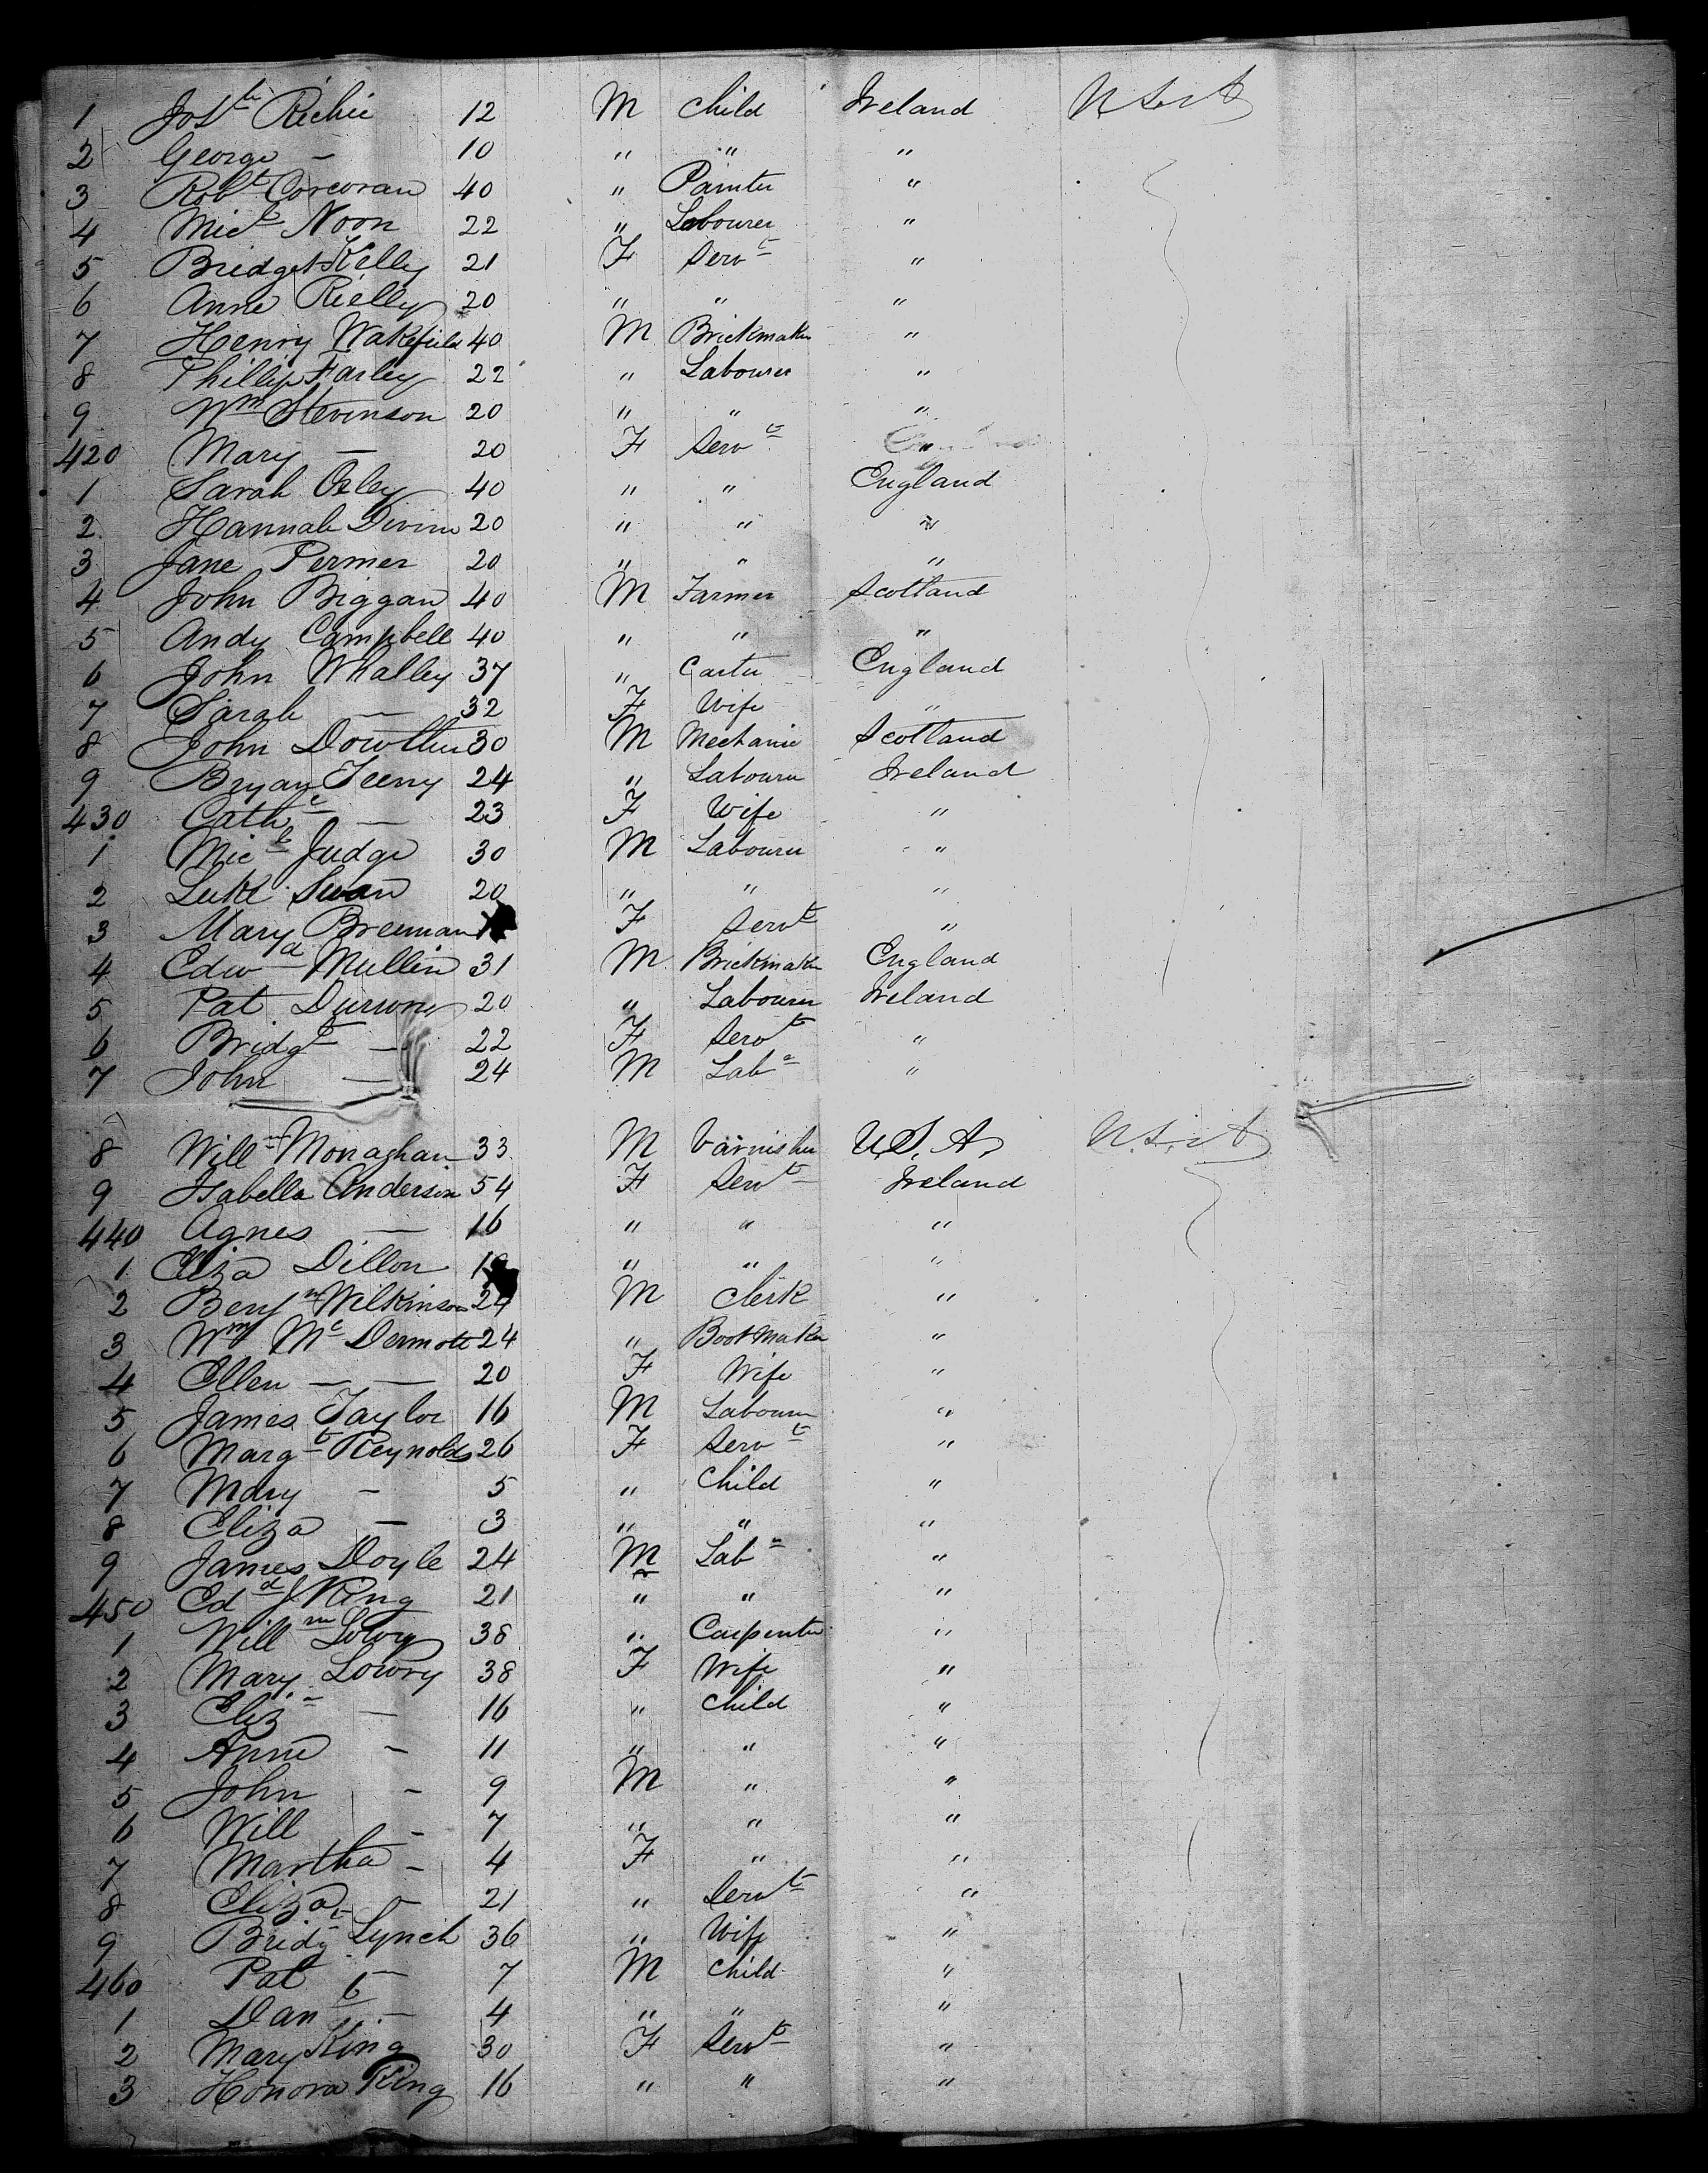 1 Josh Richie 12 M Child Ireland U.S.A
2 George — 10 " " "
3 Robt Corcoran 40 " Painter "
4 Micl Noon 22 " Labourer "
5 Bridget Kelly 21 F Servt "
6 Anne Rielly 20 " " "
7 Henry Wakefield 40 M Brickmaker "
8 Phillip Farley 22 " Labourer "
9 Wm Stevinson 20 " " "
420 Mary — 20 F Servt "
1 Sarah 40 " " England
2 Hannah Divin 20 " " "
3 Jane Permer 20 " " "
4 John Biggan 40 M Farmer Scotland
5 Andy Campbell 40 " " "
6 John Whalley 37 " Carter England
7 Sarah — 32 F Wife "
8 John 30 M Mechanic Scotland
9 Bryan Feeny 24 " Labourer Ireland
430 Cathe — 23 F Wife "
1 Micl Judge 30 M Labourer "
2 Luke Swan 20 " " "
3 Mary Breenan F Servt "
4 Edwd Mullin 31 M Brickmaker England
5 Pat 20 " Labourer Ireland
6 Bridgt — 22 F Servt "
7 John — 24 M Labr "
8 Willm Monaghan 33 M Varnisher U.S.A. U.S.A
9 Isabella Anderson 54 F Servt Ireland
440 Agnes — 16 " " "
1 Eliza Dillon " " "
2 Benjn Wilkinson 24 M Clerk "
3 Wm Mc Dermott 24 " Bootmaker "
4 Ellen — — 20 F Wife "
5 James Taylor 16 M Labourer "
6 Margt Reynolds 26 F Servt "
7 Mary — 5 " Child "
8 Eliza — 3 " " "
9 James Doyle 24 M Labr "
450 Edd J King 21 " " "
1 Willm Lowry 38 " Carpenter "
2 Mary Lowry 38 F Wife "
3 Eliz — 16 " Child "
4 Anne — 11 " " "
5 John — 9 M " "
6 Will — 7 " " "
7 Martha — 4 F " "
8 Eliza — 21 " Servt "
9 Bridgt Lynch 36 " Wife "
460 Pat — 7 M Child "
1 Danl — 4 " " "
2 Mary King 30 F Servt "
3 Honora King 16 " " "